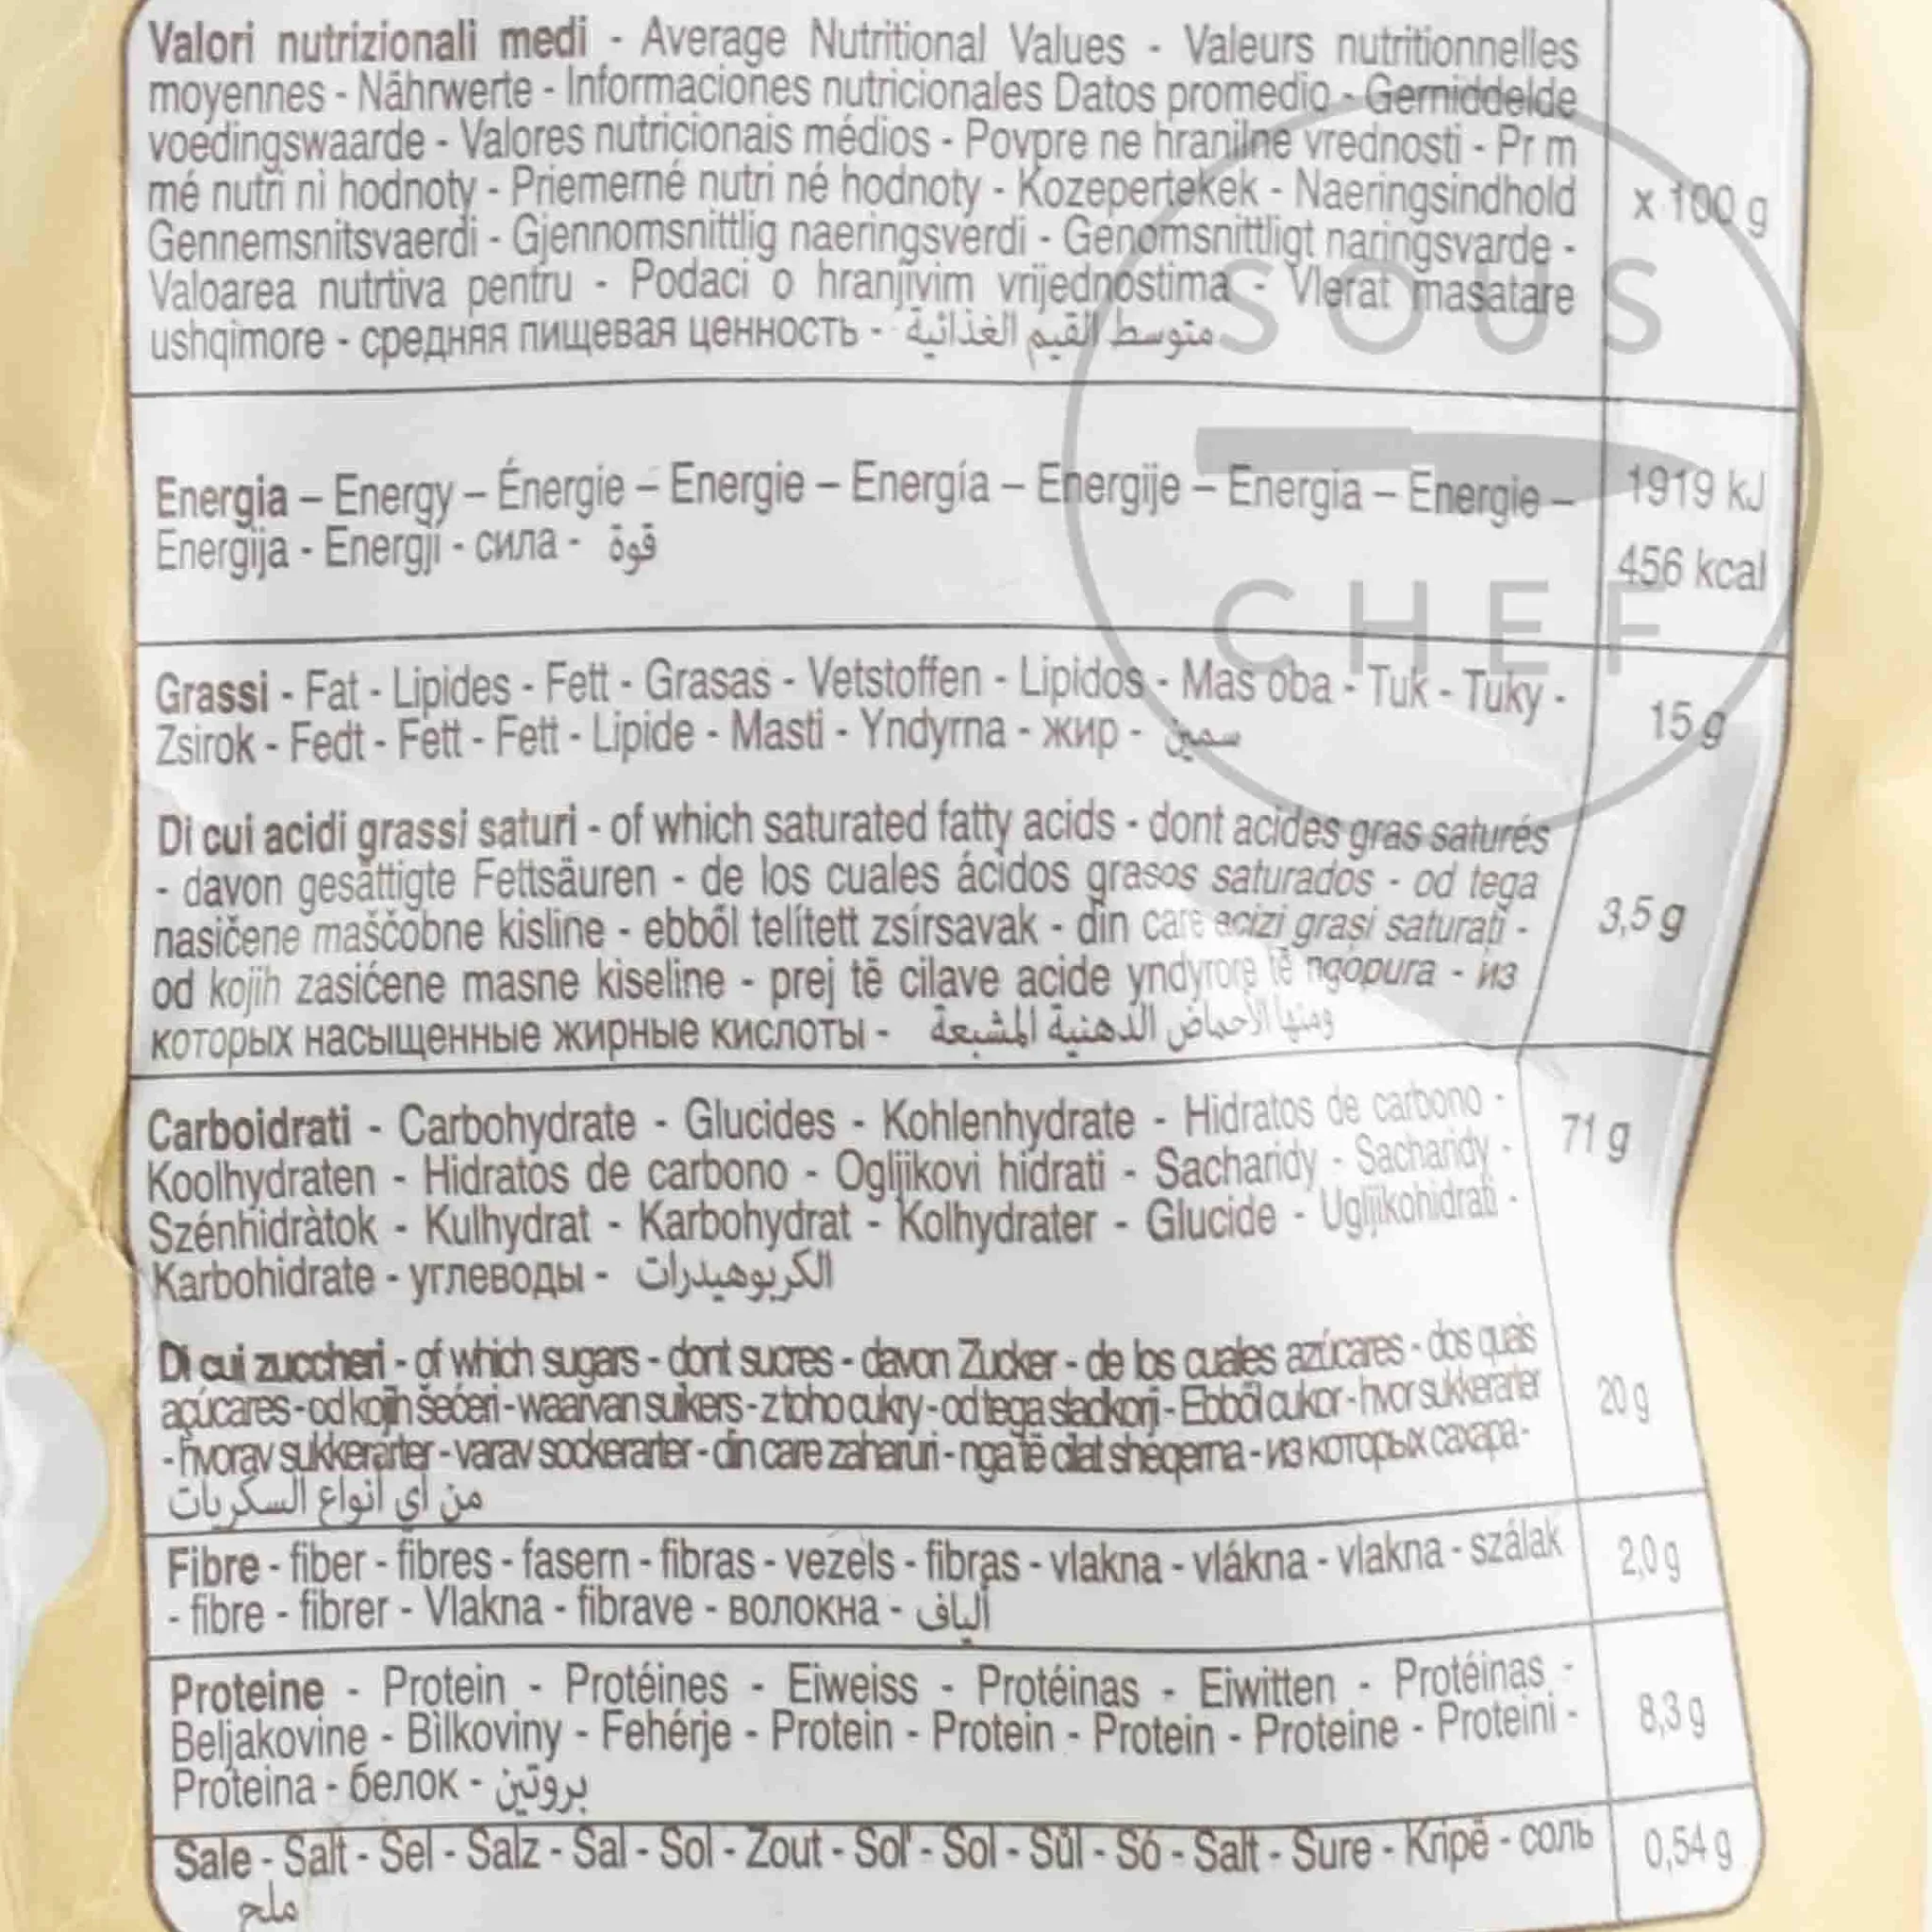 Valori nutrizionali medi - Average Nutritional Values - Valeurs nutritionnelles
moyennes - Nährwerte - Informaciones nutricionales Datos promedio - Gemiddelde
voedingswaarde - Valores nutricionais médios - Povpre ne hranilne vrednosti - Pr m
mé nutri ni hodnoty - Priemerné nutri né hodnoty - Kozepertekek - Naeringsindhold
x 100 g
Gennemsnitsvaerdi - Gjennomsnittlig naeringsverdi - Genomsnittligt naringsvarde -
Valoarea nutrtiva pentru - Podaci o hranjivim vrijednostima - Vlerat masatare
ushqimore - средняя пищевая ценность - متوسط القيم الغذائية
SOUS
CHEF
Energia – Energy – Énergie – Energie – Energía – Energije – Energia – Energie –
1919 kJ
Energija - Energji - сила - قوة
456 kcal
Grassi - Fat - Lipides - Fett - Grasas - Vetstoffen - Lipidos - Mas oba - Tuk - Tuky -
Zsirok - Fedt - Fett - Fett - Lipide - Masti - Yndyrna - жир - سمين
15 g
Di cui acidi grassi saturi - of which saturated fatty acids - dont acides gras saturés
- davon gesättigte Fettsäuren - de los cuales ácidos grasos saturados - od tega
nasičene maščobne kisline - ebből telített zsírsavak - din care acizi grasi saturați -
3,5 g
od kojih zasićene masne kiseline - prej të cilave acide yndyrore të ngopura - из
которых насыщенные жирные кислоты - ومنها الأحماض الذهنية المشبعة
Carboidrati - Carbohydrate - Glucides - Kohlenhydrate - Hidratos de carbono -
71 g
Koolhydraten - Hidratos de carbono - Ogljikovi hidrati - Sacharidy - Sacharidy -
Szénhidràtok - Kulhydrat - Karbohydrat - Kolhydrater - Glucide - Ugljikohidrati -
Karbohidrate - углеводы - الكربوهيدرات
Di cui zuccheri - of which sugars - dont sucres - davon Zucker - de los cuales azúcares - dos quais
açúcares - od kojih šećeri - waarvan suikers - z toho cukry - od tega sladkorji - Ebből cukor - hvor sukkerarter
20 g
- hvorav sukkerarter - varav sockerarter - din care zaharuri - nga të cilat sheqerna - из которых сахара -
من أي أنواع السكريات
Fibre - fiber - fibres - fasern - fibras - vezels - fibras - vlakna - vlákna - vlakna - szálak
2,0 g
- fibre - fibrer - Vlakna - fibrave - волокна - ألياف
Proteine - Protein - Protéines - Eiweiss - Protéinas - Eiwitten - Protéinas -
Beljakovine - Bìlkoviny - Fehérje - Protein - Protein - Protein - Proteine - Proteini -
8,3 g
Proteina - белок - بروتين
Sale - Salt - Sel - Salz - Sal - Sol - Zout - Sol' - Sol - Sůl - Só - Salt - Sure - Kripë - соль
0,54 g
ملح